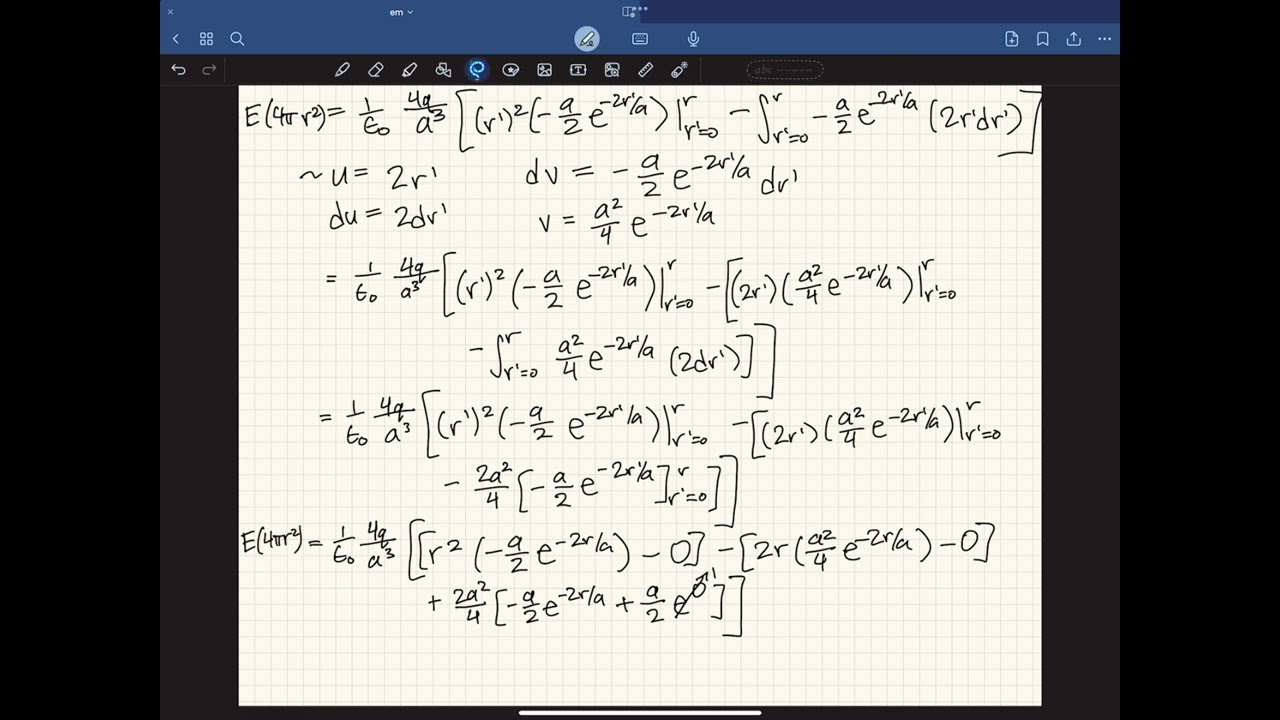 em
abc
E(4πr²) = 1/ε₀ 4q/a³ [(r')²(-a/2 e^(-2r'/a))|_(r'=0)^r - ∫_(r'=0)^r -a/2 e^(-2r'/a) (2r'dr')]
~ u = 2r' dv = -a/2 e^(-2r'/a) dr'
du = 2dr' v = a²/4 e^(-2r'/a)
= 1/ε₀ 4q/a³ [(r')²(-a/2 e^(-2r'/a))|_(r'=0)^r - [(2r')(a²/4 e^(-2r'/a))|_(r'=0)^r
- ∫_(r'=0)^r a²/4 e^(-2r'/a) (2dr')]]
= 1/ε₀ 4q/a³ [(r')²(-a/2 e^(-2r'/a))|_(r'=0)^r - [(2r')(a²/4 e^(-2r'/a))|_(r'=0)^r
- 2a²/4 [-a/2 e^(-2r'/a)]_(r'=0)^r]]
E(4πr²) = 1/ε₀ 4q/a³ [[r²(-a/2 e^(-2r/a)) - 0] - [2r(a²/4 e^(-2r/a)) - 0]
+ 2a²/4 [-a/2 e^(-2r/a) + a/2 e^0 1]]